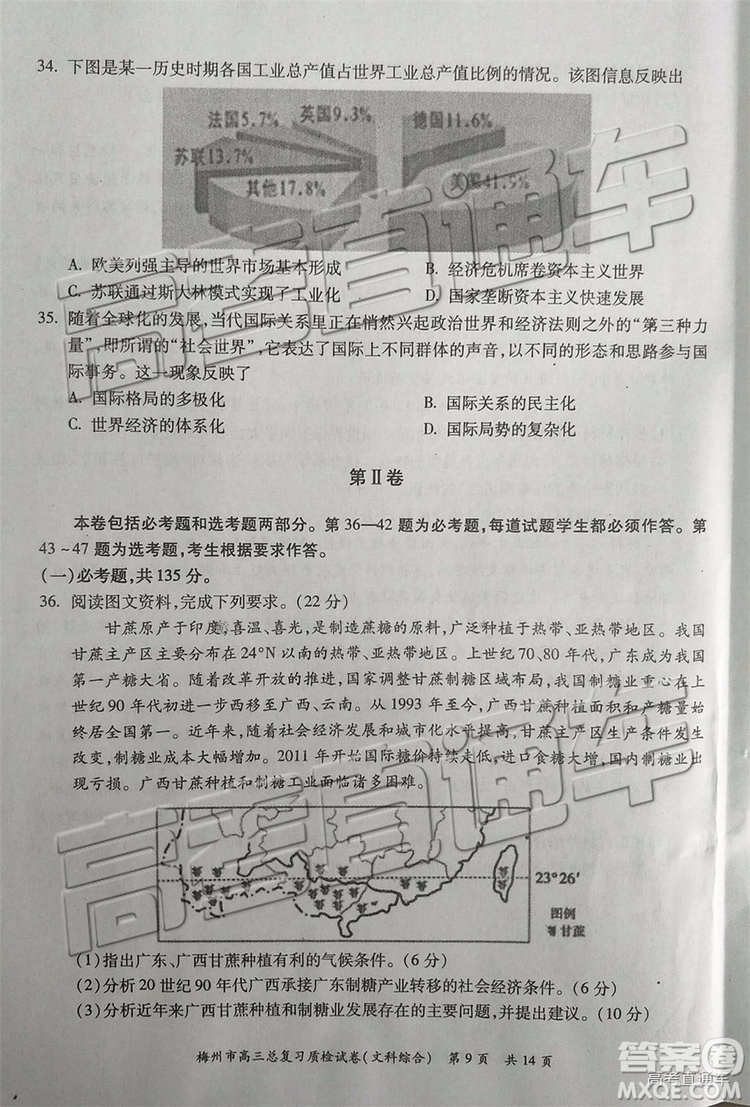 34. 下图是某一历史时期各国工业总产值占世界工业总产值比例的情况。该图信息反映出
法国5.7% 英国9.3% 德国11.6%
苏联13.7%
其他17.8% 美国41.9%
A. 欧美列强主导的世界市场基本形成 B. 经济危机席卷资本主义世界
C. 苏联通过斯大林模式实现了工业化 D. 国家垄断资本主义快速发展
35. 随着全球化的发展,当代国际关系里正在悄然兴起政治世界和经济法则之外的“第三种力
量”,即所谓的“社会世界”,它表达了国际上不同群体的声音,以不同的形态和思路参与国
际事务。这一现象反映了
A. 国际格局的多极化 B. 国际关系的民主化
C. 世界经济的体系化 D. 国际局势的复杂化
第Ⅱ卷
本卷包括必考题和选考题两部分。第36—42题为必考题,每道试题学生都必须作答。第
43~47题为选考题,考生根据要求作答。
(一)必考题,共135分。
36. 阅读图文资料,完成下列要求。(22分)
甘蔗原产于印度,喜温、喜光,是制造蔗糖的原料,广泛种植于热带、亚热带地区。我国
甘蔗主产区主要分布在24°N以南的热带、亚热带地区。上世纪70、80年代,广东成为我国
第一产糖大省。随着改革开放的推进,国家调整甘蔗制糖区域布局,甘蔗制糖业重心在上世
纪90年代初进一步西移至广西、云南。从1993年至今,广西甘蔗种植面积和产糖量始
终居全国第一。近年来,随着社会经济发展和城市化水平提高,甘蔗主产区生产条件发生
改变,制糖业成本大幅增加。2011年开始国际糖价持续走低,进口食糖大增,国内制糖业出
现亏损。广西甘蔗种植和制糖工业面临诸多困难。
23°26′
图例
甘蔗
(1)指出广东、广西甘蔗种植有利的气候条件。(6分)
(2)分析20世纪90年代广西承接广东制糖产业转移的社会经济条件。(6分)
(3)分析近年来广西甘蔗种植和制糖业发展存在的主要问题,并提出建议。(10分)
梅州市高三总复习质检试卷(文科综合) 第9页 共14页
高考直通车
高考直通车
答案卷
高考直通车
MXQE.COM